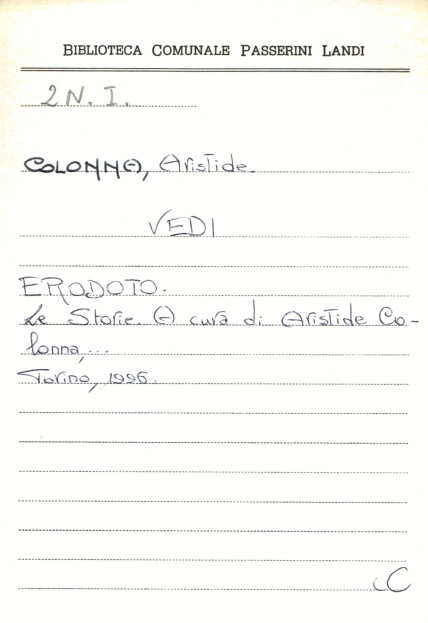 BIBLIOTECA COMUNALE PASSERINI LANDI
2 N. I.
COLONNA, Aristide.
VEDI
ERODOTO.
Le Storie. A cura di Aristide Co-
lonna,...
Torino, 1996.
C